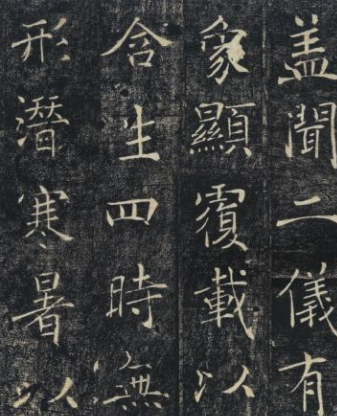 盖聞二儀有
象顯覆載以
含生四時無
形潛寒暑以